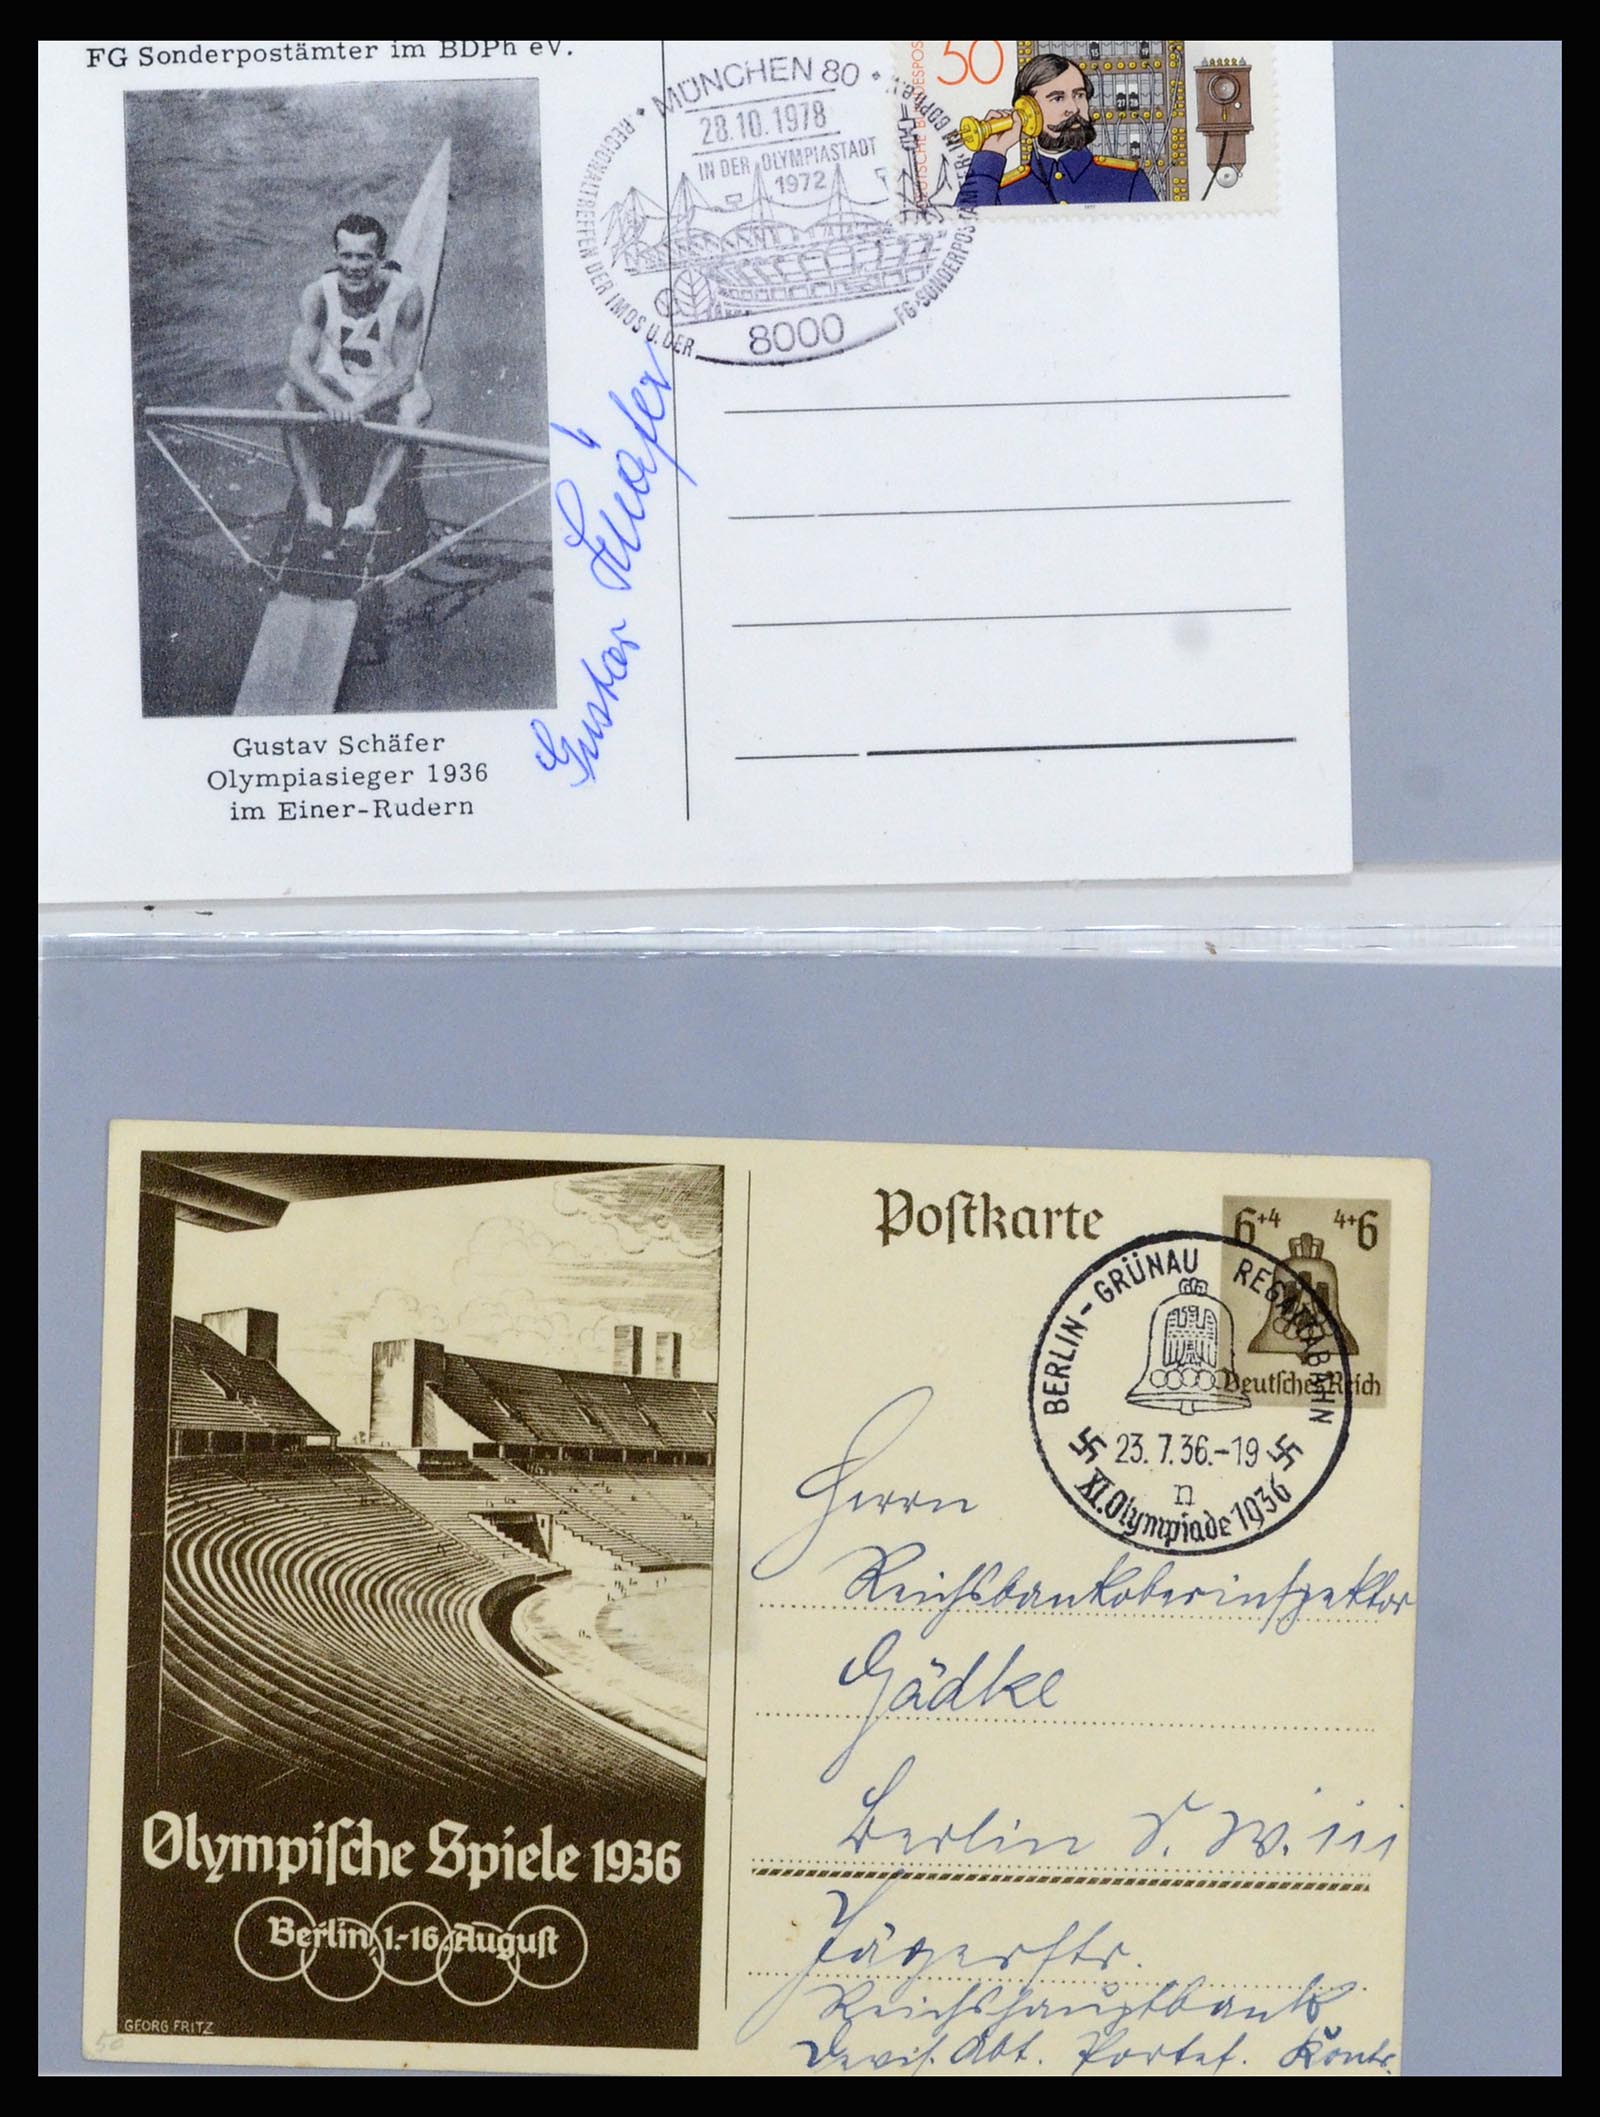 FG Sonderpostämter im BDPh eV.
MÜNCHEN 80
28.10.1978
IN DER OLYMPIASTADT
1972
REGIONALTREFFEN DER IMOS U. DER
FG-SONDERPOSTÄMTER IM BDPH e.V.
8000
50
DEUTSCHE BUNDESPOST
Gustav Schäfer
Gustav Schäfer
Olympiasieger 1936
im Einer-Rudern
Postkarte
6+4 4+6
Deutsches Reich
BERLIN-GRÜNAU REGATTABAHN
23.7.36.-19
n
XI. Olympiade 1936
Herrn
Reichsbankoberinspektor
Gädke
Berlin S. W. 111
Jägerstr.
Reichshauptbank
Devis. Abt. Portef. Kontr.
Olympische Spiele 1936
Berlin, 1.-16. August
GEORG FRITZ
50